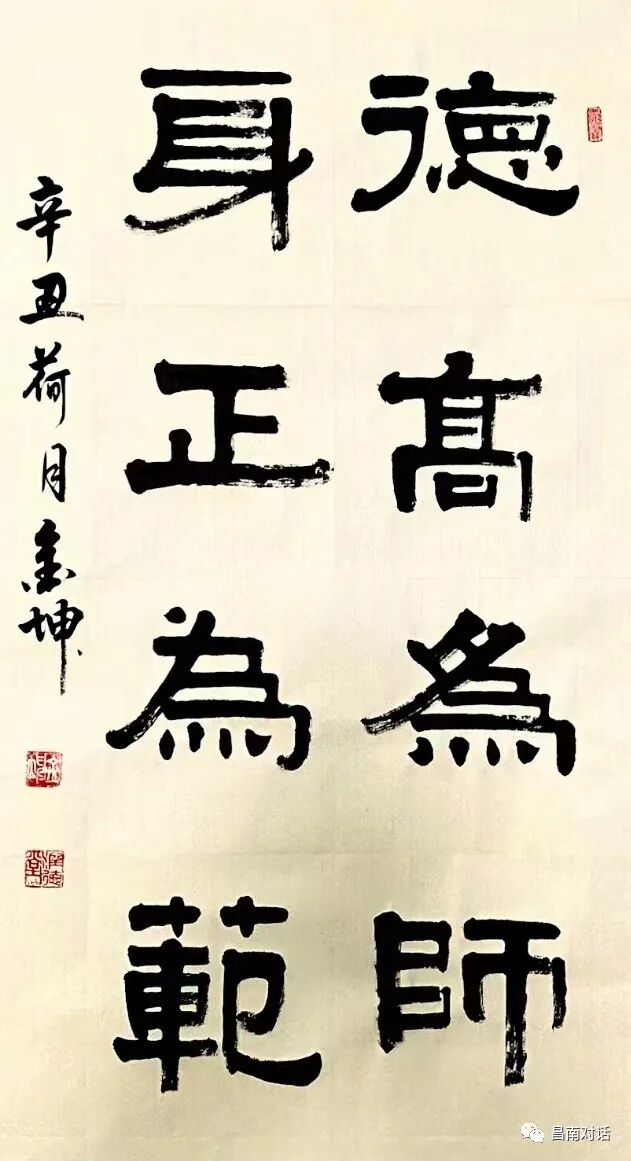 德高為師
身正為範
辛丑荷月金坤
昌南对话